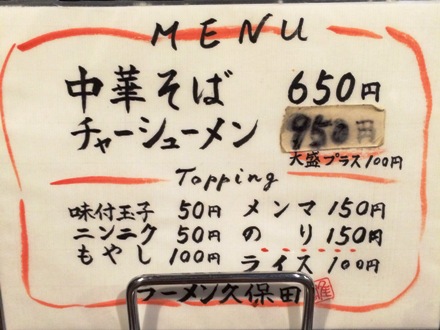 MENU
中華そば 650円
チャーシューメン 950円
大盛プラス100円
Topping
味付玉子 50円 メンマ 150円
ニンニク 50円 のり 150円
もやし 100円 ライス 100円
ラーメン久保田